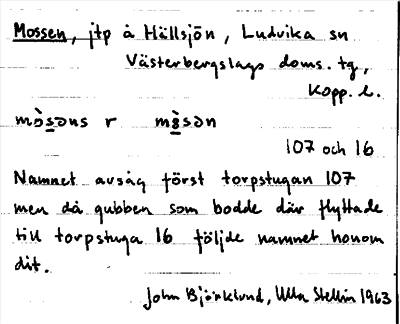 Mossen, jtp å Hällsjön, Ludvika sn
Västerbergslags doms. tg,
Kopp. l.
mòsəns r mòsən
107 och 16
Namnet avsåg först torpstugan 107
men då gubben som bodde där flyttade
till torpstuga 16 följde namnet honom
dit.
John Björklund, Ulla Stellin 1963